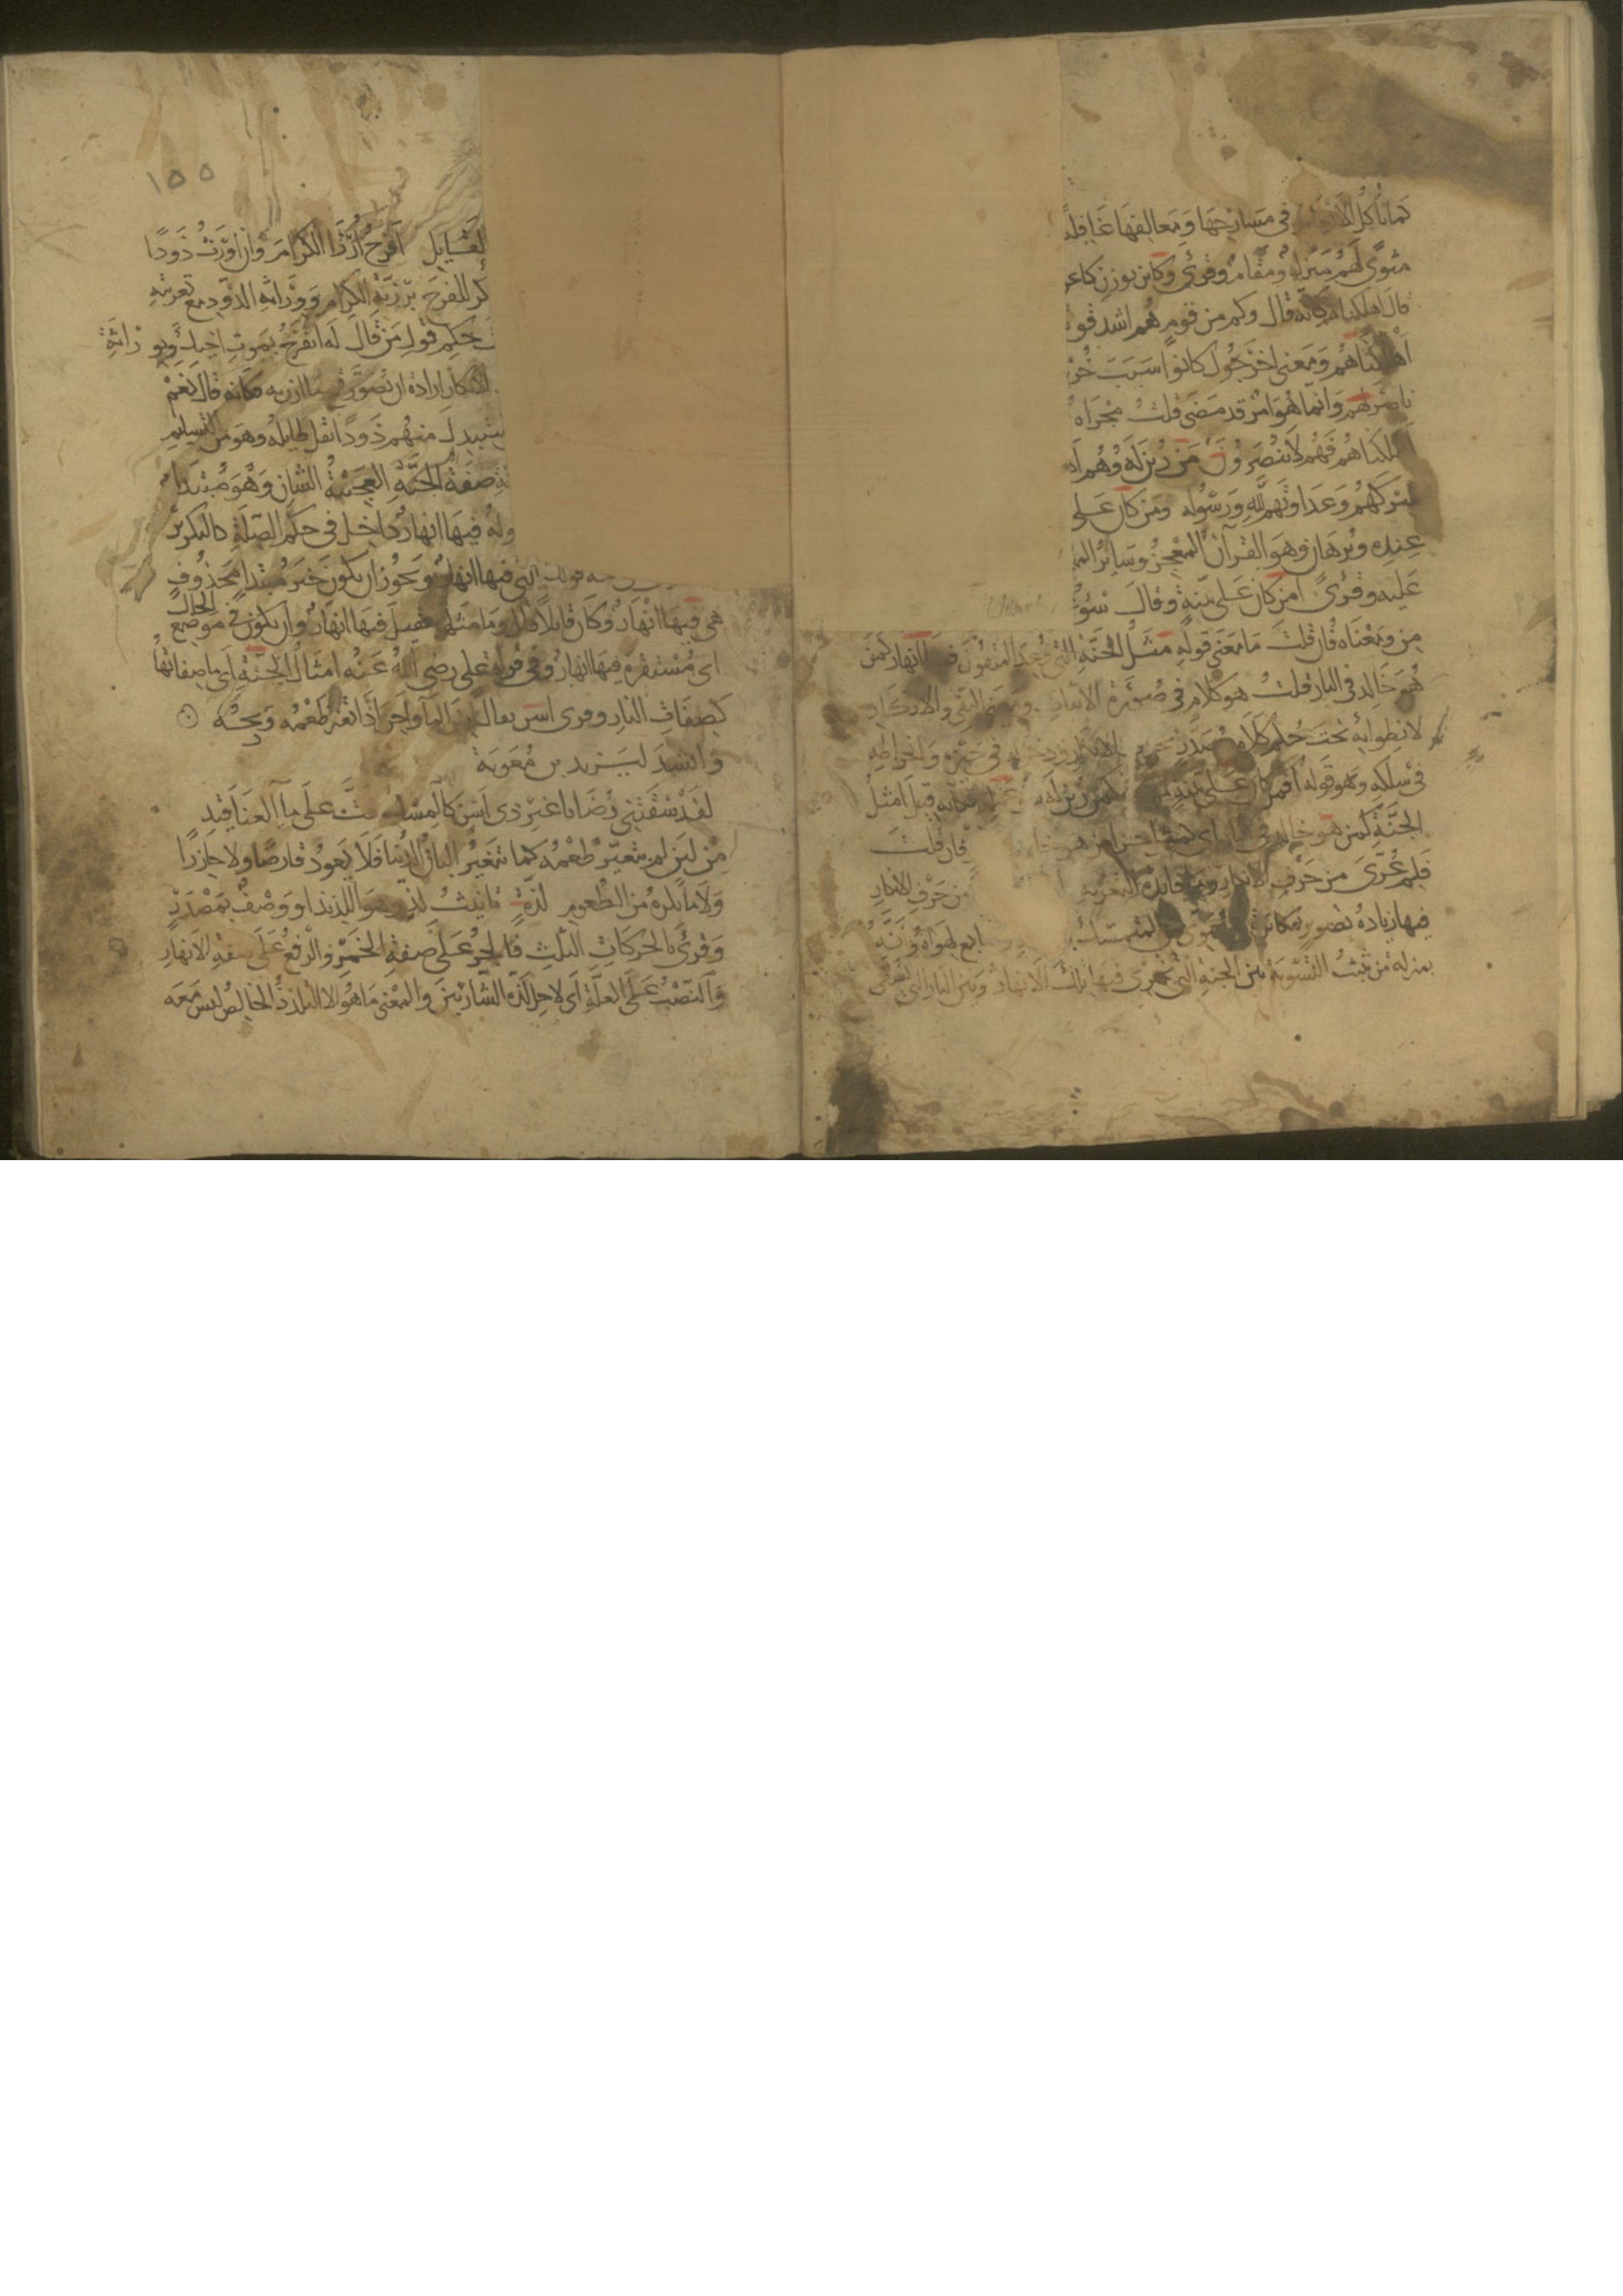 كما تأكل الأنعام في مسارحها ومعالفها غافلة
مثوى لهم منزل ومقام وقرئ وكائن بوزن كاعن
قال أهلكناهم كأنه قال وكم من قوم هم أشد قوة
أهلكناهم ومعنى أخرجوك كانوا سبب خروجك
ناصر لهم وإنما هو أمر قد مضى قلت مجراه
أهلكناهم فهم لا ينصرون من زين له وهم أهل
شركهم وعداوتهم لله ورسوله ومن كان على
عنده وبرهان وهو القرآن المعجز وسائر
عليه وقرئ أمن كان على بينة وقال سوء
من ومعناه فإن قلت ما معنى قوله مثل الجنة التي وعد المتقون فيها أنهار كمن
هو خالد في النار قلت هو كلام في صورة الإثبات ومعنى النفي والإنكار
لانطوائه تحت حكم كلام مصدر بحرف الإنكار ودخوله في حيزه وانخراطه
في سلكه وهو قوله أفمن كان على بينة كمن زين له فكأنه قيل أمثل
الجنة كمن هو خالد في النار أي كمثل جزاء من هو خالد فإن قلت
فلم عري من حرف الإنكار وما فائدة التعرية من حرف الإنكار
فيها زيادة تصوير لمكابرة من يسوي بين المتمسك تابع لهواه وأنه
بمنزلة من يثبت التسوية بين الجنة التي تجري فيها تلك الأنهار وبين النار التي يسقى
١٥٥
القايل أفرح أن أرزأ الكرام وأن أورث ذودا
كر للفرح برزية الكرام ووراثة الذود مع تعريته
حكم قول من قال له أتفرح بموت أخيك وبوراثة
الإنكار إرادة أن يصور قبح ما أزن به فكأنه قال نعم
يستبدل منهم ذودا يقل طايله وهو من التسليم
صفة الجنة العجيبة الشان وهو مبتدا
وله فيها أنهار داخل في حكم الصلة كالتكرير
قولك التي فيها أنهار ويجوز أن يكون خبر مبتدا محذوف
هي فيها أنهار وكأن قايلا قال وما مثلها فقيل فيها أنهار وأن يكون في موضع الحال
أي مستقرة فيها أنهار وفي قراءة علي رضي الله عنه أمثال الجنة أي ما صفاتها
كصفات النار وقرئ أسن يقال أسن الماء وأجن إذا تغير طعمه وريحه
وأنشد ليزيد بن معوية
لقد سقتني رضابا غير ذي أسن كالمسك فت على ماء العناقيد
من لبن لم يتغير طعمه كما تتغير ألبان الدنيا فلا يعود قارصا ولا حازرا
ولا ما يكره من الطعوم لذة تأنيث لذ وهو اللذيذ أو وصف بمصدر
وقرئ بالحركات الثلث فالجر على صفة الخمر والرفع على صفة الأنهار
والنصب على العلة أي لأجل لذة الشاربين والمعنى ما هو إلا التلذذ الخالص ليس معه